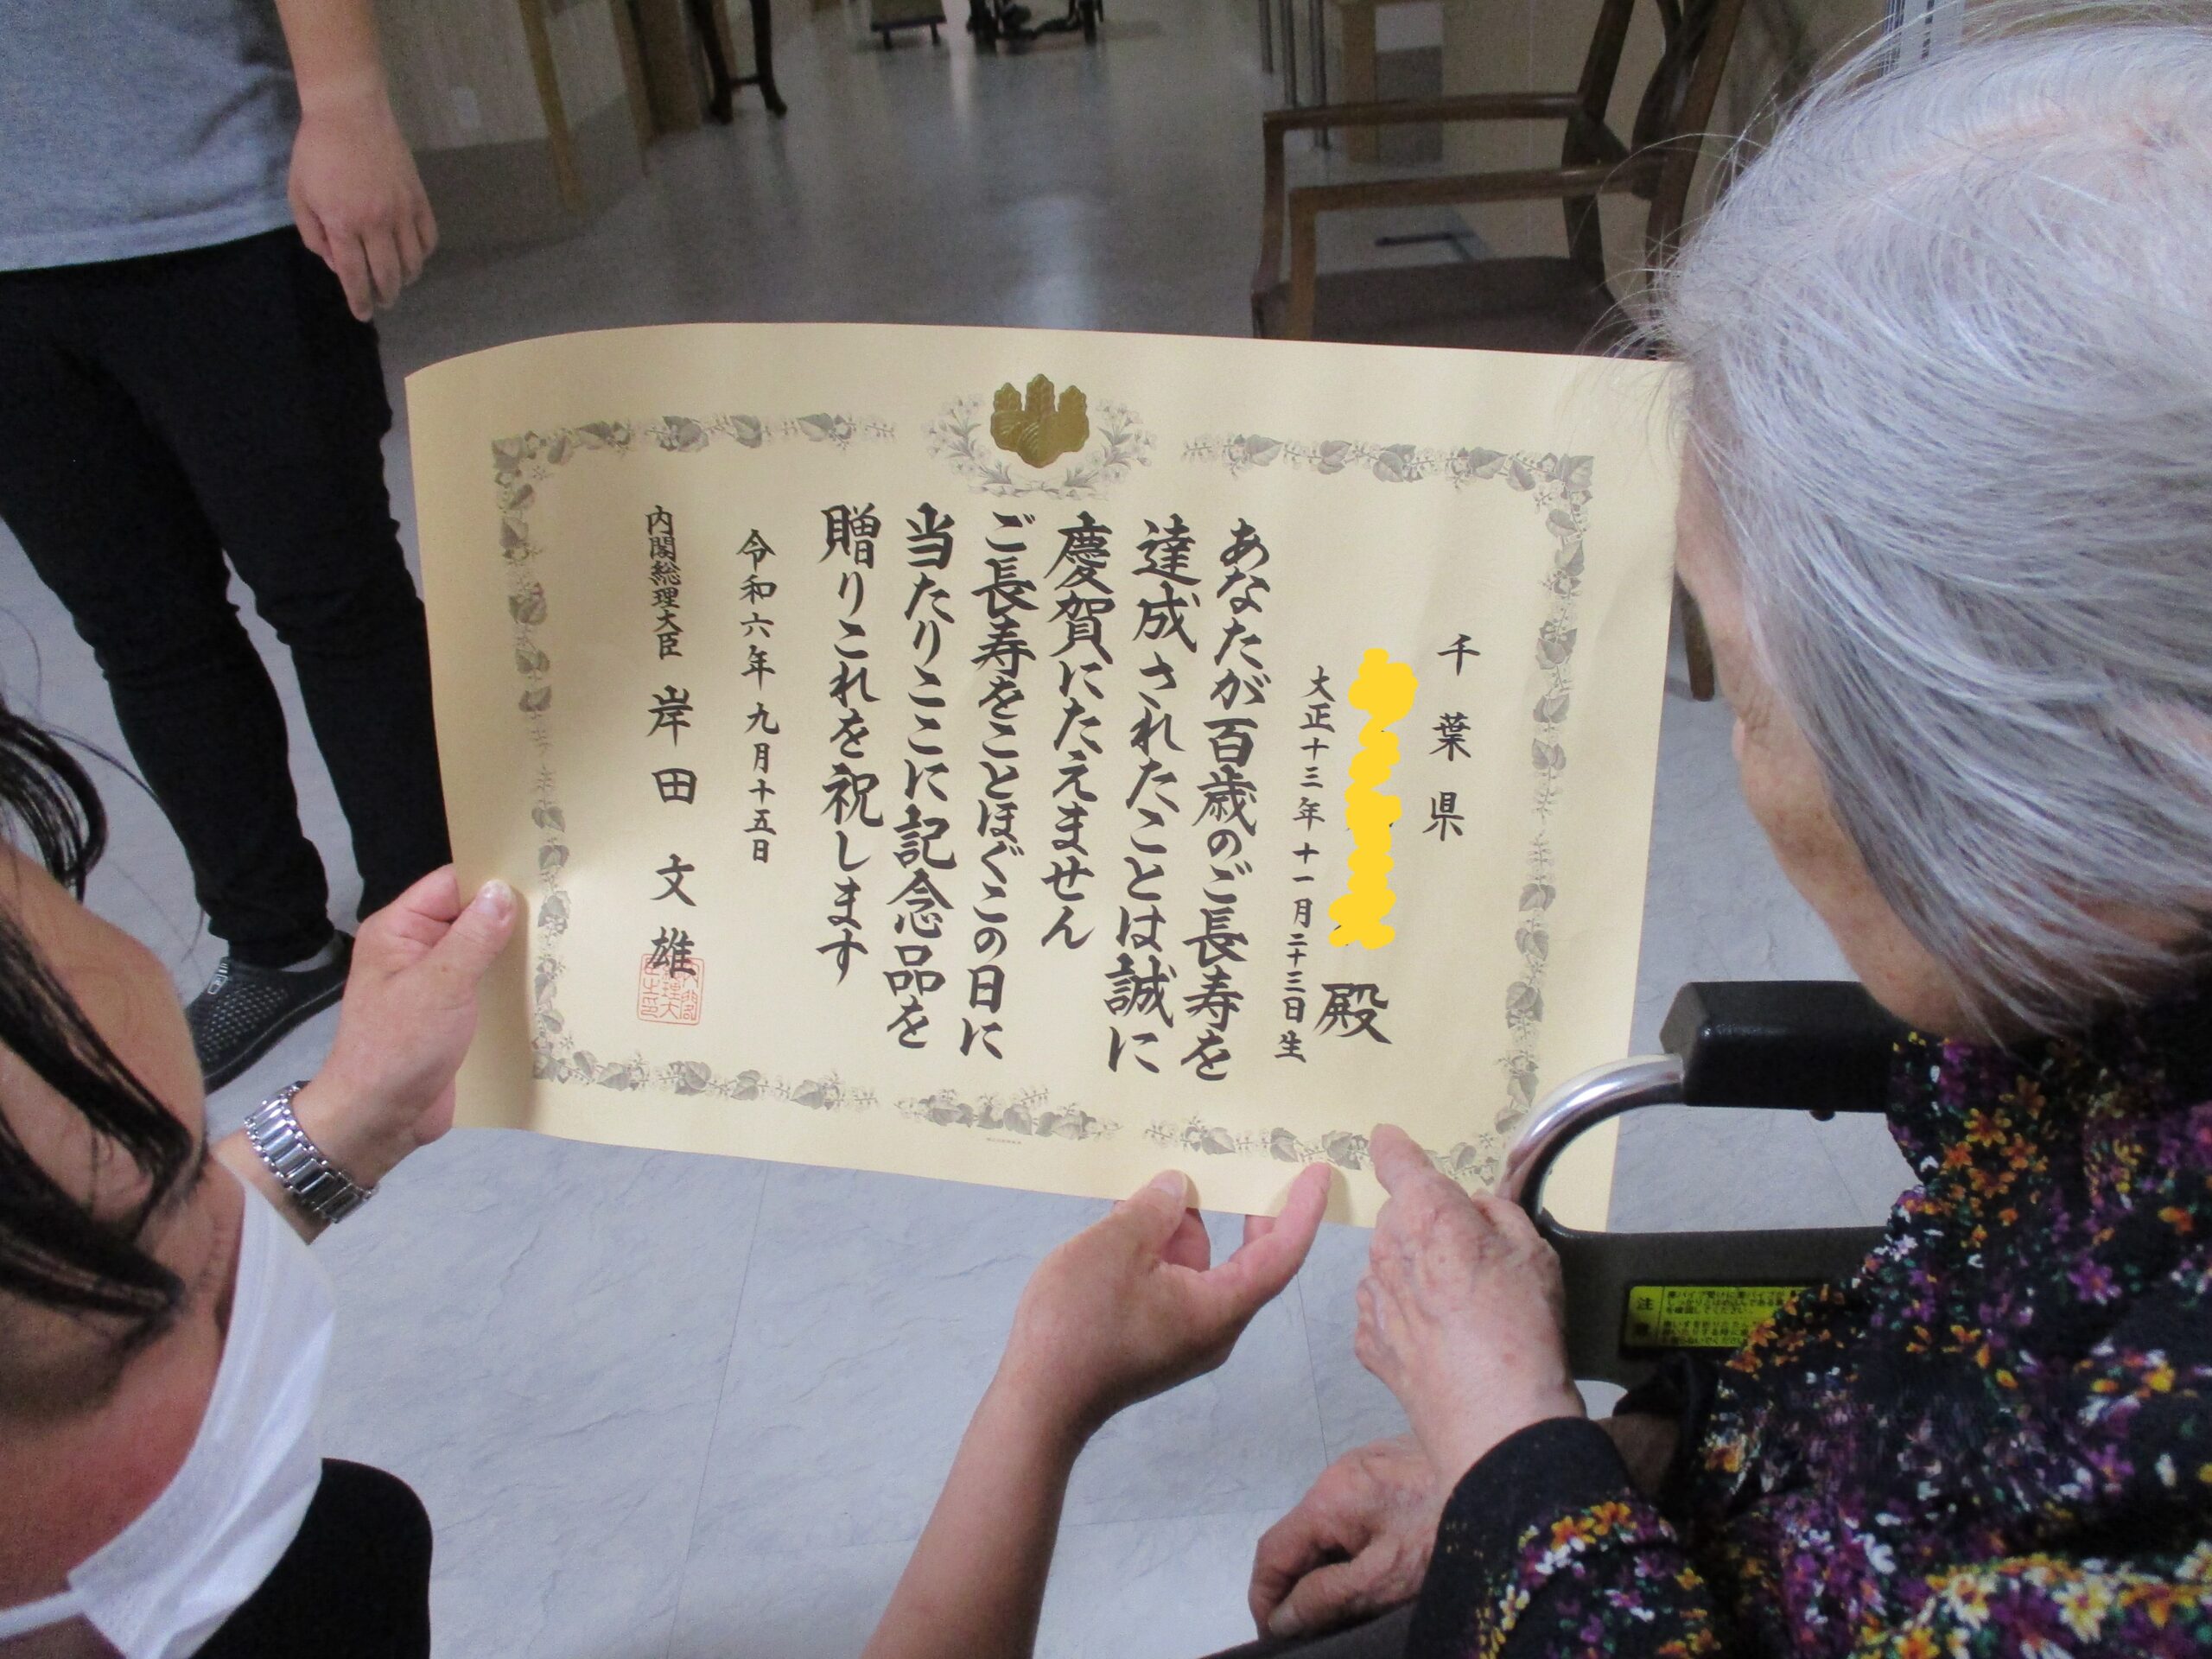 千葉県
殿
大正十三年十一月二十三日生
あなたが百歳のご長寿を
達成されたことは誠に
慶賀にたえません
ご長寿をことほぐこの日に
当たりここに記念品を
贈りこれを祝します
令和六年九月十五日
内閣総理大臣 岸田文雄
注